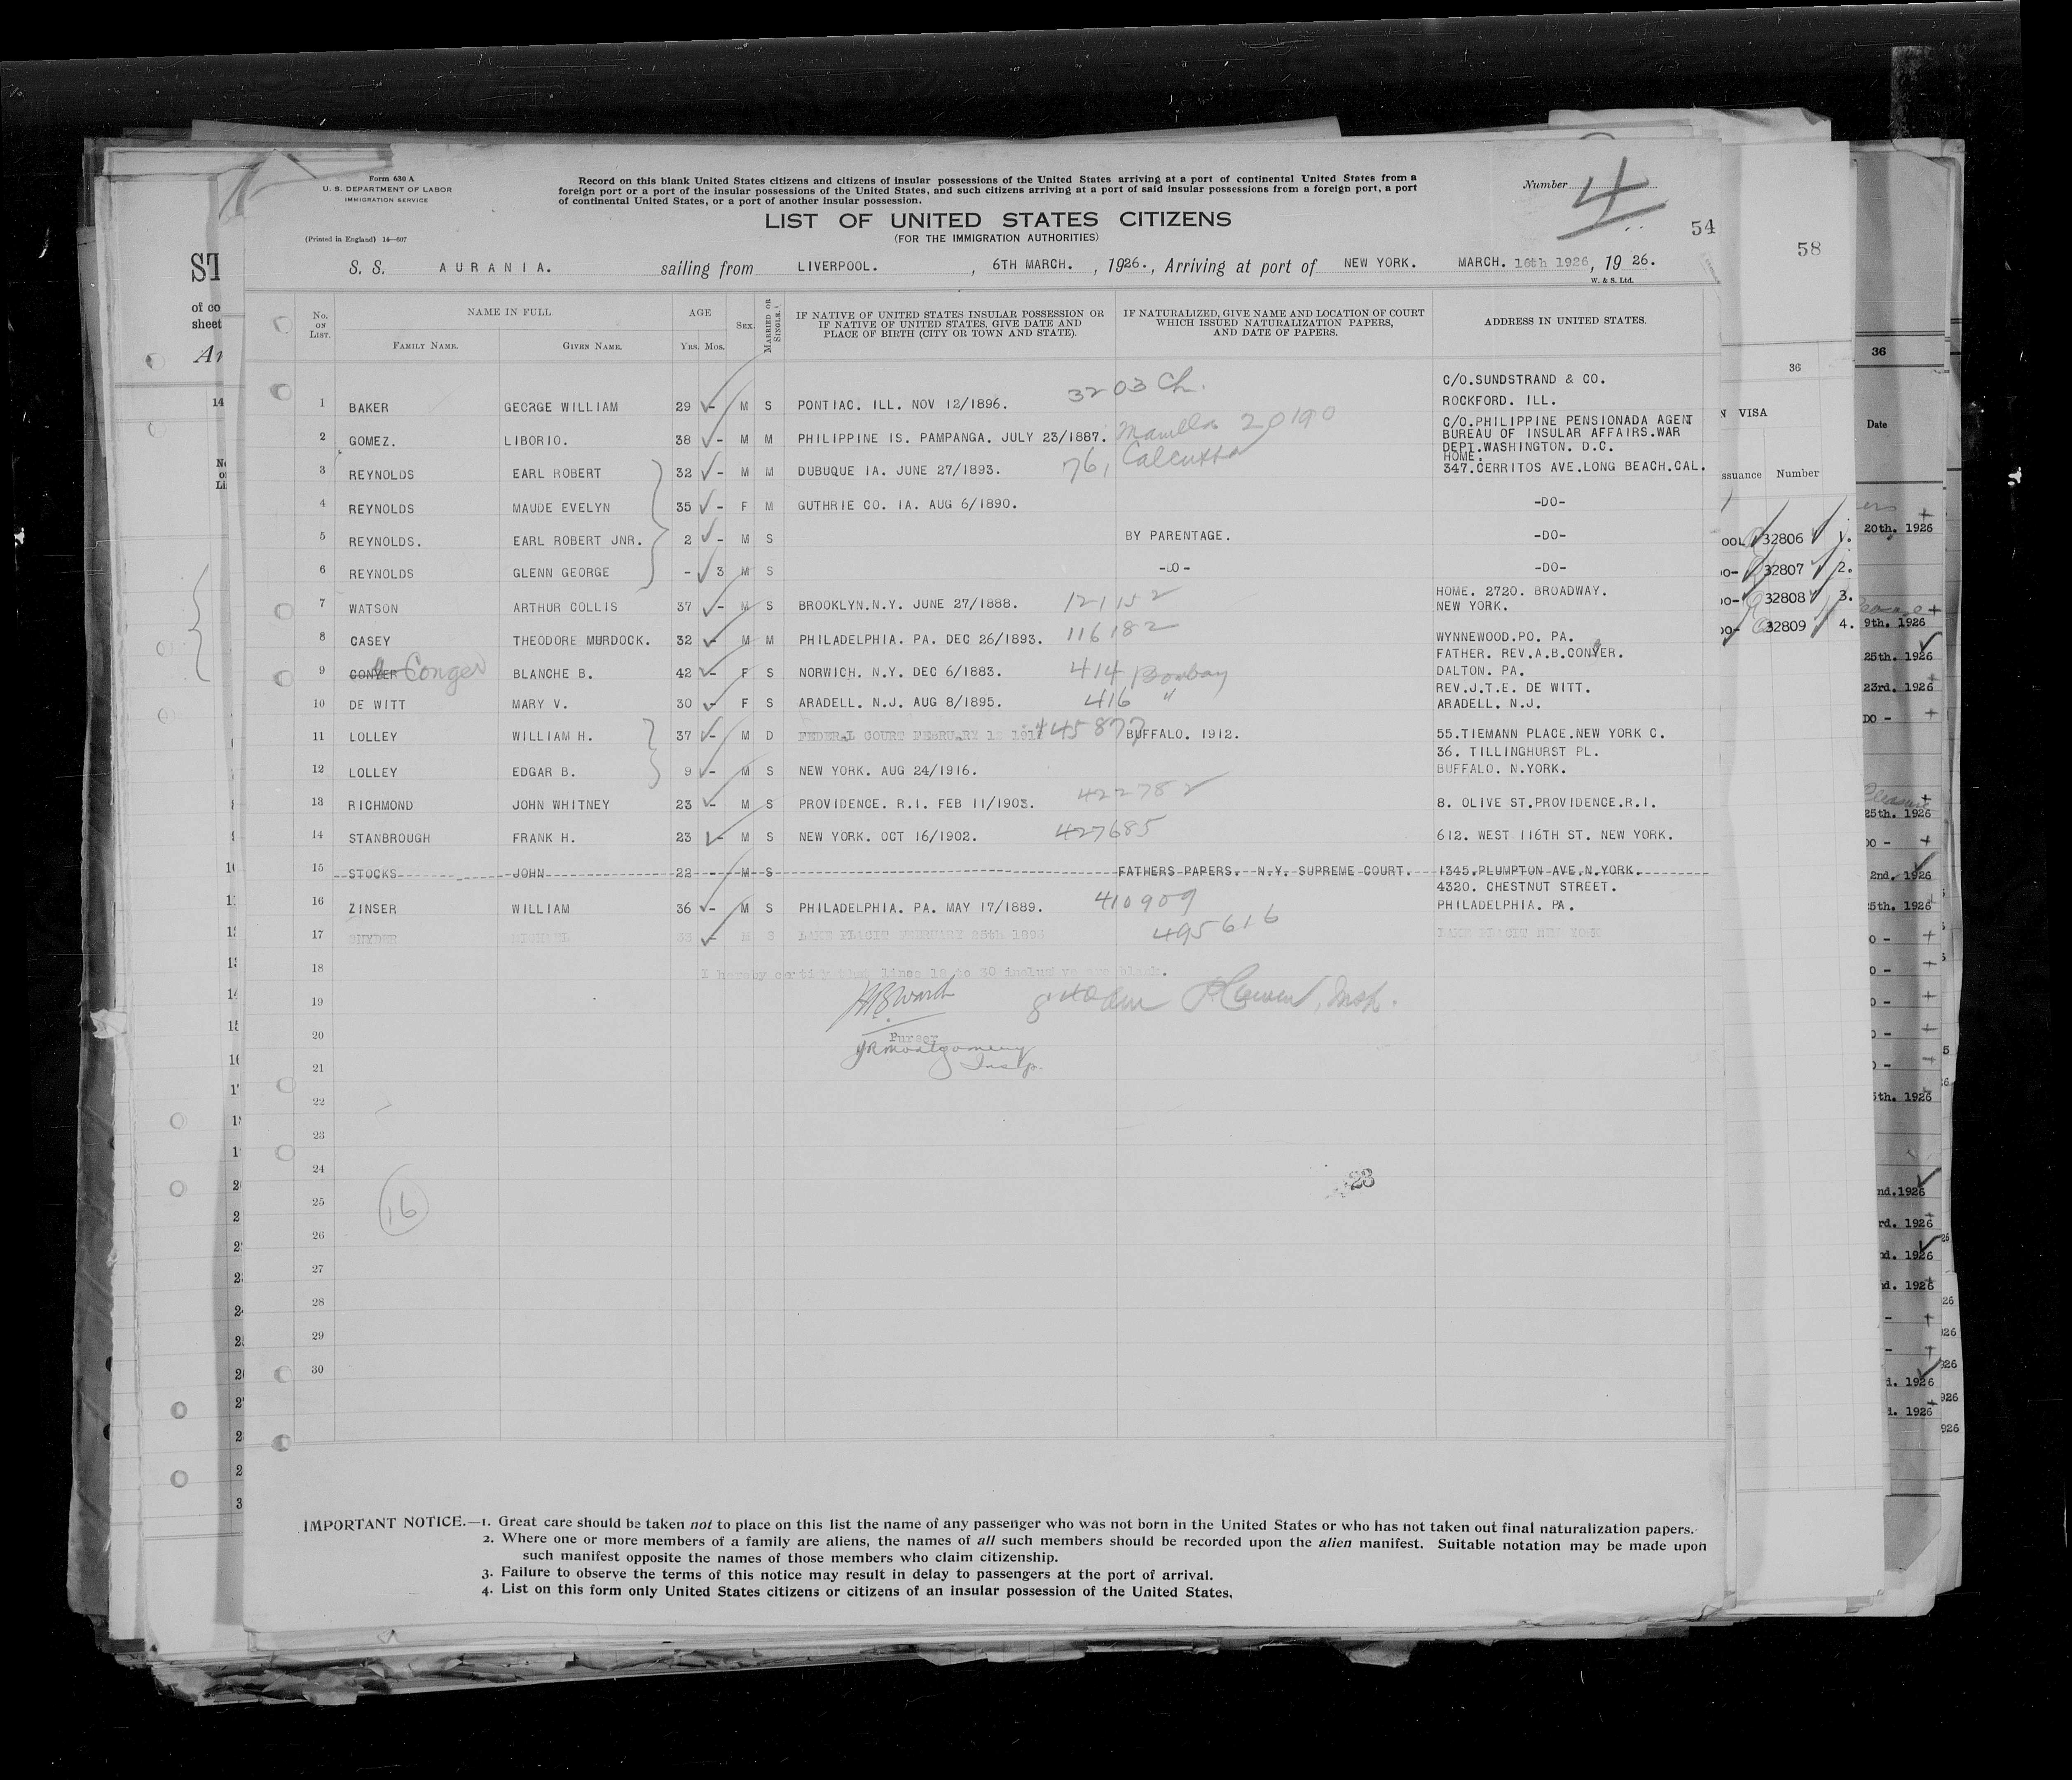 Form 630 A
U. S. DEPARTMENT OF LABOR
IMMIGRATION SERVICE
(Printed in England) 14—607
Record on this blank United States citizens and citizens of insular possessions of the United States arriving at a port of continental United States from a
foreign port or a port of the insular possessions of the United States, and such citizens arriving at a port of said insular possessions from a foreign port, a port
of continental United States, or a port of another insular possession.
Number 4
54
LIST OF UNITED STATES CITIZENS
(FOR THE IMMIGRATION AUTHORITIES)
S. S. AURANIA. sailing from LIVERPOOL. , 6TH MARCH. , 1926. , Arriving at port of NEW YORK. MARCH. 16th 1926, 19 26.
W. & S. Ltd.
No. ON LIST. NAME IN FULL AGE SEX. MARRIED OR SINGLE. IF NATIVE OF UNITED STATES INSULAR POSSESSION OR IF NATIVE OF UNITED STATES, GIVE DATE AND PLACE OF BIRTH (CITY OR TOWN AND STATE). IF NATURALIZED, GIVE NAME AND LOCATION OF COURT WHICH ISSUED NATURALIZATION PAPERS, AND DATE OF PAPERS. ADDRESS IN UNITED STATES.
FAMILY NAME. GIVEN NAME. YRS. MOS.
1 BAKER GEORGE WILLIAM 29 - M S PONTIAC. ILL. NOV 12/1896. 3203 Ch. C/O.SUNDSTRAND & CO. ROCKFORD. ILL.
2 GOMEZ. LIBORIO. 38 - M M PHILIPPINE IS. PAMPANGA. JULY 23/1887. Manilla 20190 C/O.PHILIPPINE PENSIONADA AGENT BUREAU OF INSULAR AFFAIRS.WAR DEPT.WASHINGTON. D.C.
3 REYNOLDS EARL ROBERT 32 - M M DUBUQUE IA. JUNE 27/1893. 76, Calcutta HOME. 347.CERRITOS AVE.LONG BEACH.CAL.
4 REYNOLDS MAUDE EVELYN 35 - F M GUTHRIE CO. IA. AUG 6/1890. -DO-
5 REYNOLDS. EARL ROBERT JNR. 2 - M S BY PARENTAGE. -DO-
6 REYNOLDS GLENN GEORGE - 3 M S -DO- -DO-
7 WATSON ARTHUR COLLIS 37 - M S BROOKLYN.N.Y. JUNE 27/1888. 121152 HOME. 2720. BROADWAY. NEW YORK.
8 CASEY THEODORE MURDOCK. 32 - M M PHILADELPHIA. PA. DEC 26/1893. 116182 WYNNEWOOD.PO. PA.
9 CONYER Conger BLANCHE B. 42 - F S NORWICH. N.Y. DEC 6/1883. 414 Bombay FATHER. REV.A.B.CONYER. DALTON. PA.
10 DE WITT MARY V. 30 - F S ARADELL. N.J. AUG 8/1895. 416 " REV.J.T.E. DE WITT. ARADELL. N.J.
11 LOLLEY WILLIAM H. 37 - M D FEDERAL COURT FEBRUARY 445877 BUFFALO. 1912. 55.TIEMANN PLACE.NEW YORK C.
12 LOLLEY EDGAR B. 9 - M S NEW YORK. AUG 24/1916. 36. TILLINGHURST PL. BUFFALO. N.YORK.
13 RICHMOND JOHN WHITNEY 23 - M S PROVIDENCE. R.I. FEB 11/1903. 422782 8. OLIVE ST.PROVIDENCE.R.I.
14 STANBROUGH FRANK H. 23 - M S NEW YORK. OCT 16/1902. 427685 612. WEST 116TH ST. NEW YORK.
15 STOCKS JOHN 22 - M S FATHERS PAPERS. N.Y. SUPREME COURT. 1345.PLUMPTON AVE.N.YORK.
16 ZINSER WILLIAM 36 - M S PHILADELPHIA. PA. MAY 17/1889. 410909 4320. CHESTNUT STREET. PHILADELPHIA. PA.
17 SNYDER MICHAEL 33 M S LAKE PLACIT FEBRUARY 25th 1893 495616 LAKE PLACIT NEW YORK
18 I hereby certify that lines 18 to 30 inclusive are blank.
19
20 Purser
JRMontgomery
21 Insp.
22
23
24
23
25
16
26
27
28
29
30
IMPORTANT NOTICE.—1. Great care should be taken not to place on this list the name of any passenger who was not born in the United States or who has not taken out final naturalization papers.
2. Where one or more members of a family are aliens, the names of all such members should be recorded upon the alien manifest. Suitable notation may be made upon
such manifest opposite the names of those members who claim citizenship.
3. Failure to observe the terms of this notice may result in delay to passengers at the port of arrival.
4. List on this form only United States citizens or citizens of an insular possession of the United States.
58
36
VISA
Number
32806 1.
32807 2.
32808 3.
32809 4.
36
Date
20th. 1926
9th. 1926
25th. 1926
23rd. 1926
25th. 1926
2nd. 1926